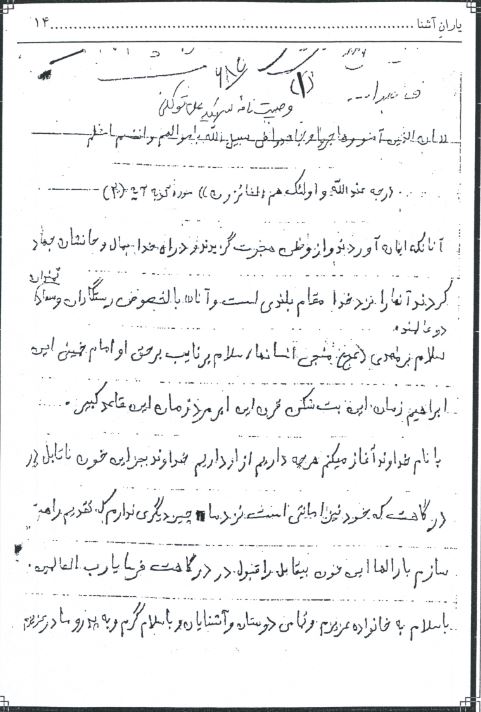 یاران آشنا ........ ۱۴
(۱)
وصیت نامه شهید علی توکلی
الذین آمنوا و هاجروا و جاهدوا فی سبیل الله باموالهم و انفسهم اعظم
درجه عندالله و اولئک هم الفائزون)) سوره توبه آیه (۲۰)
آنانکه ایمان آوردند و از وطن هجرت گزیدند و در راه خدا بمال و جانشان جهاد
کردند آنها را نزد خدا مقام بلندی است و آنان بالخصوص رستگاران و سعادتمندان
دو عالمند
سلام بر مهدی (عج) منجی انسانها، سلام بر نایب برحق او امام خمینی این
ابراهیم زمان این بت شکن قرن این ابر مرد زمان این قائد کبیر.
با نام خداوند آغاز میکنم هر چه داریم از او داریم خداوند بجز این خون ناقابل در
درگاهت که خود نیز امانتی است نزد ما چیز دیگری ندارم که تقدیم راهت
سازم بارالها این خون بیقابل را قبول در درگاهت فرما یا رب العالمین.
با سلام به خانواده عزیزم و تمامی دوستان و آشنایان و با سلام گرم و به پدر و مادر عزیزم